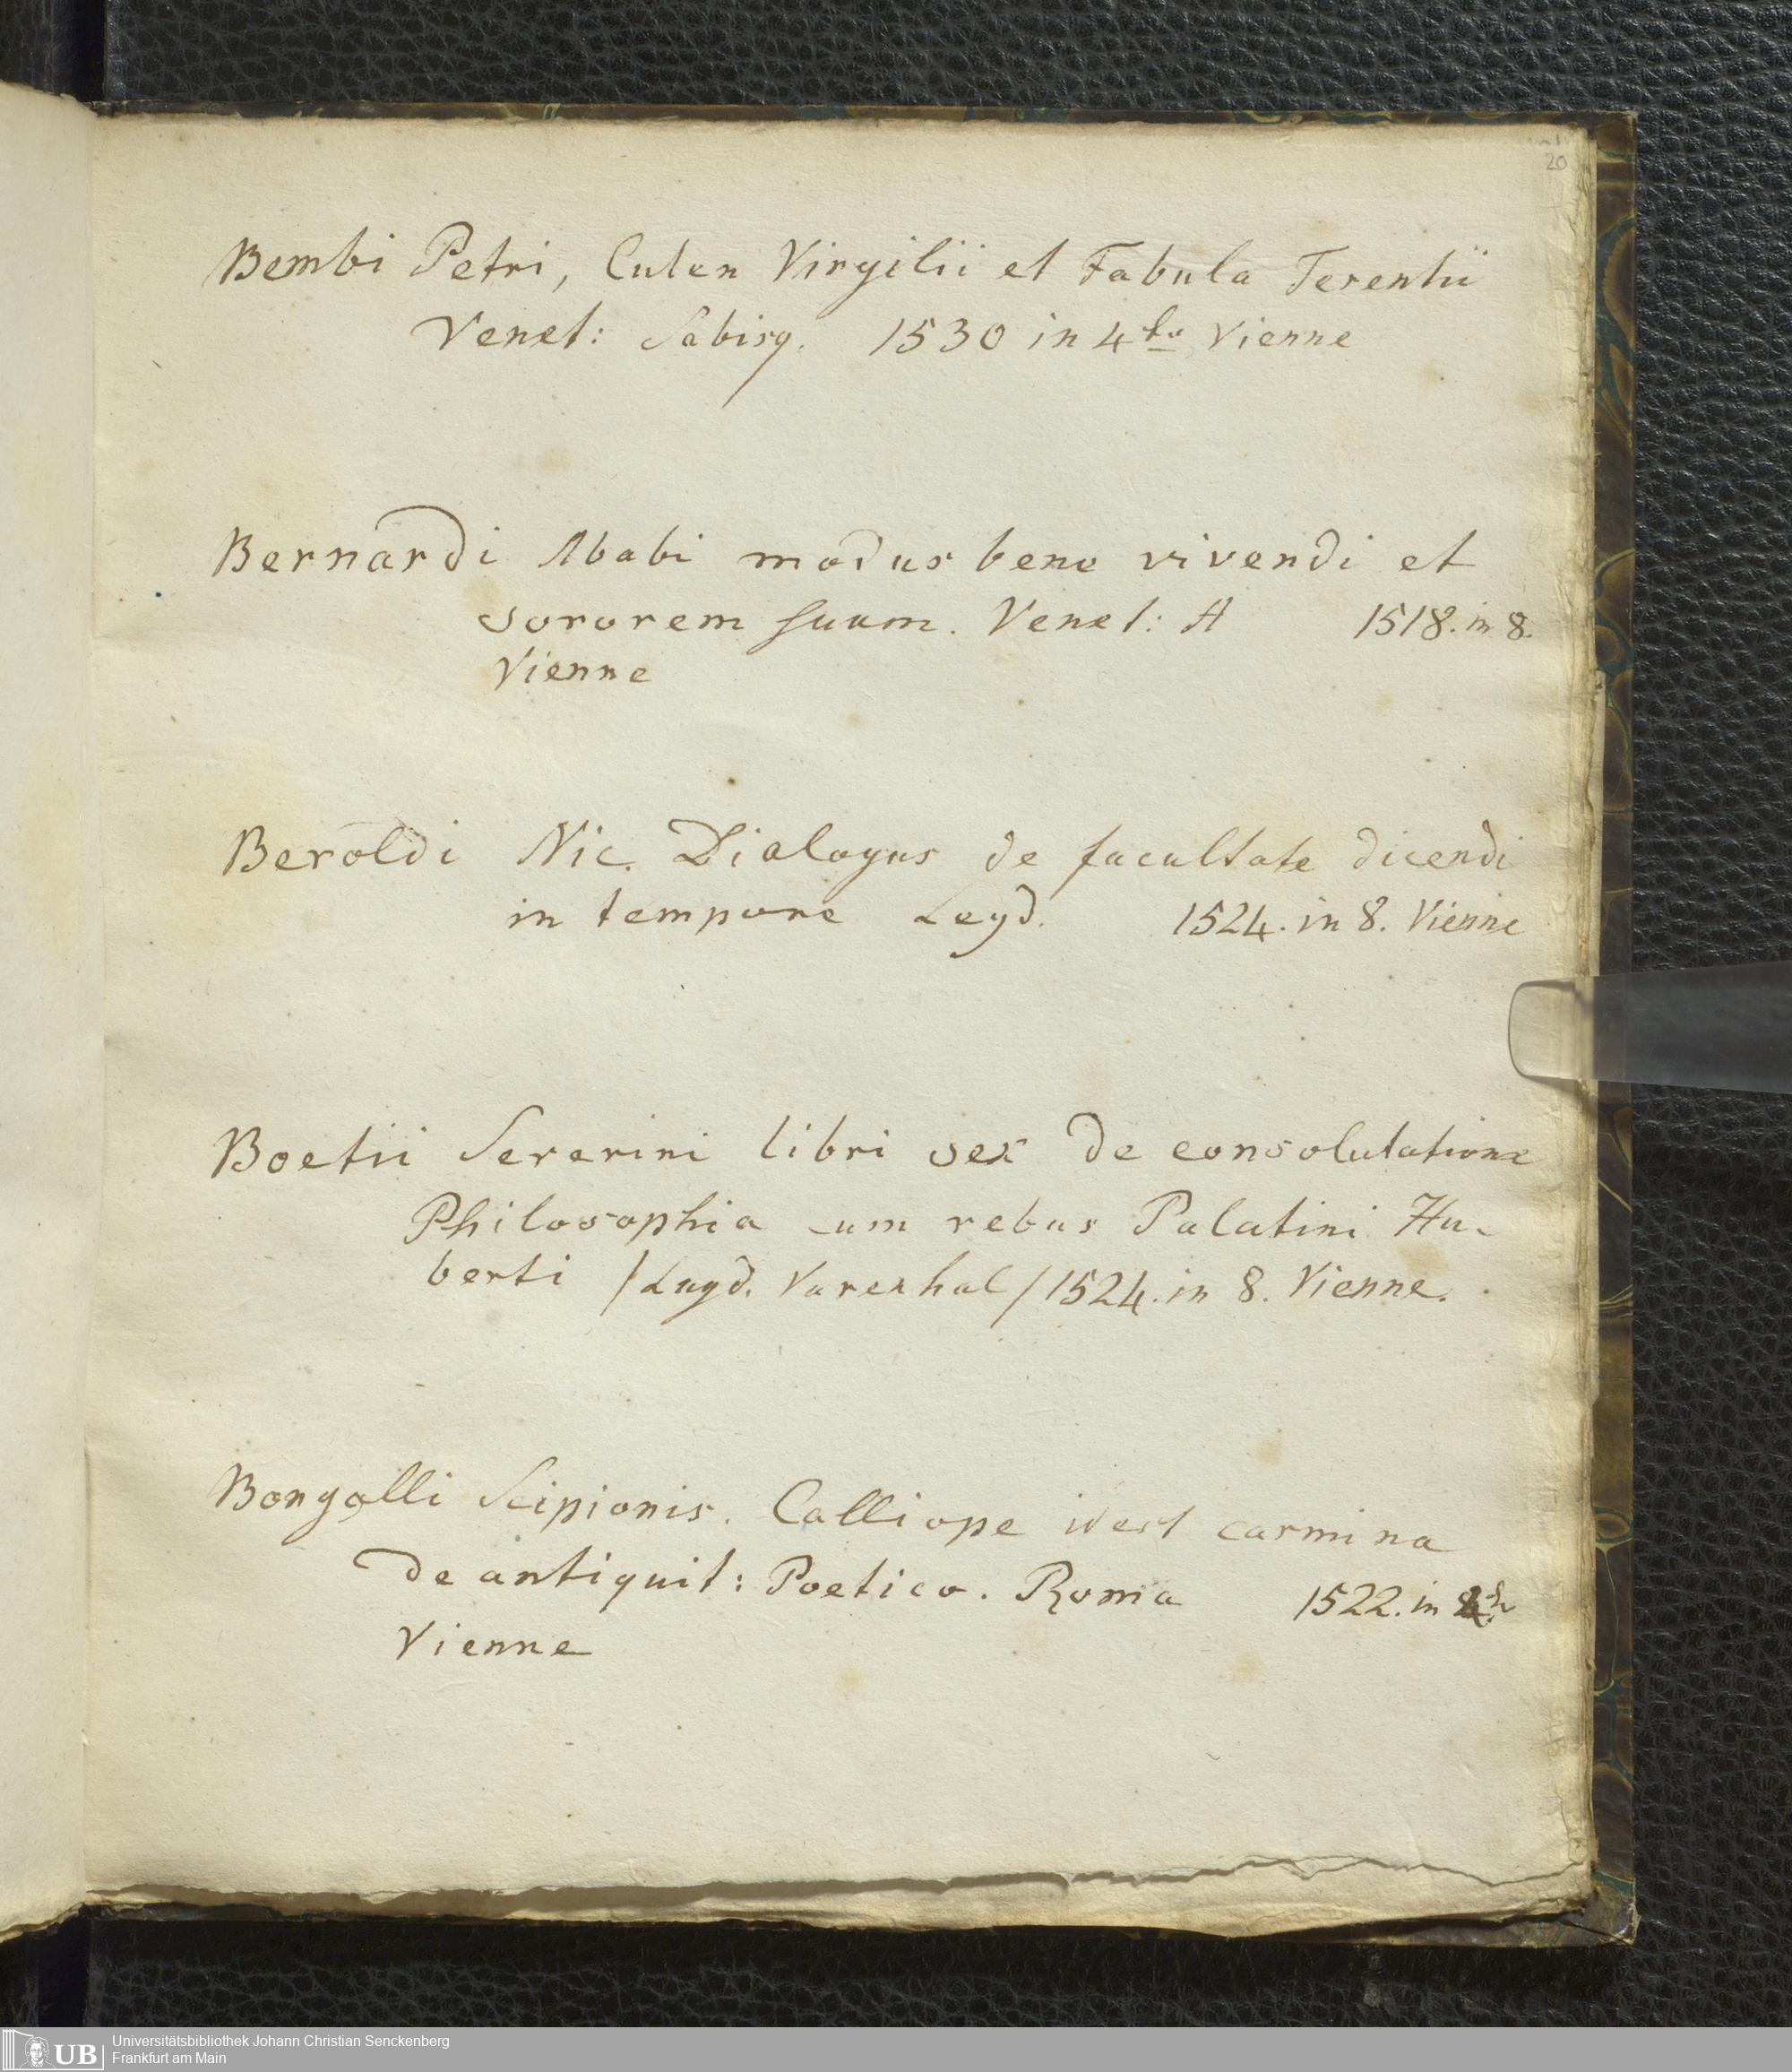 20
Bembi Petri, Culen Virgilii et Fabula Terentii
Venet: Sabisq. 1530 in 4to Vienne
Bernardi Ababi modus bene vivendi et
sororem suum. Venet: A 1518. in 8.
Vienne
Beroldi Nic. Dialogus de facultate dicendi
in tempore Leyd. 1524. in 8. Vienne
Boetii Sererini libri sex de consolutatione
Philosophia cum rebus Palatini Hu-
berti /Lugd. Varenhal/ 1524. in 8. Vienne.
Bongalli Scipionis. Calliope idest carmina
de antiquit: Poetico. Roma 1522. in
Vienne
UB Universitätsbibliothek Johann Christian Senckenberg
Frankfurt am Main